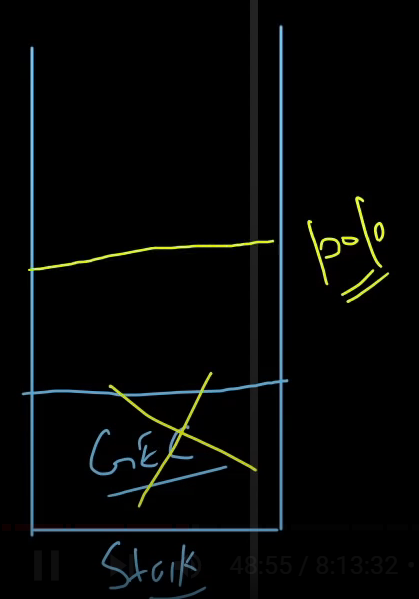 pop
GEC
Stack
48:55 / 8:13:32 •